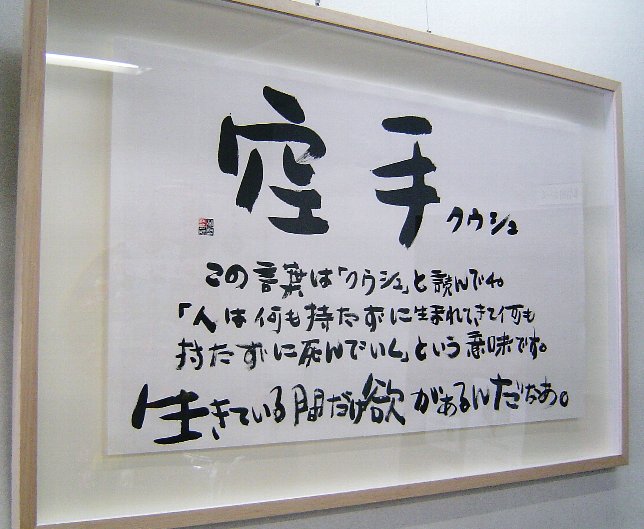 空手 クウシュ
この言葉は「クウシュ」と読んでね。
「人は何も持たずに生まれてきて何も
持たずに死んでいく」という意味です。
生きている間だけ欲があるんだなあ。